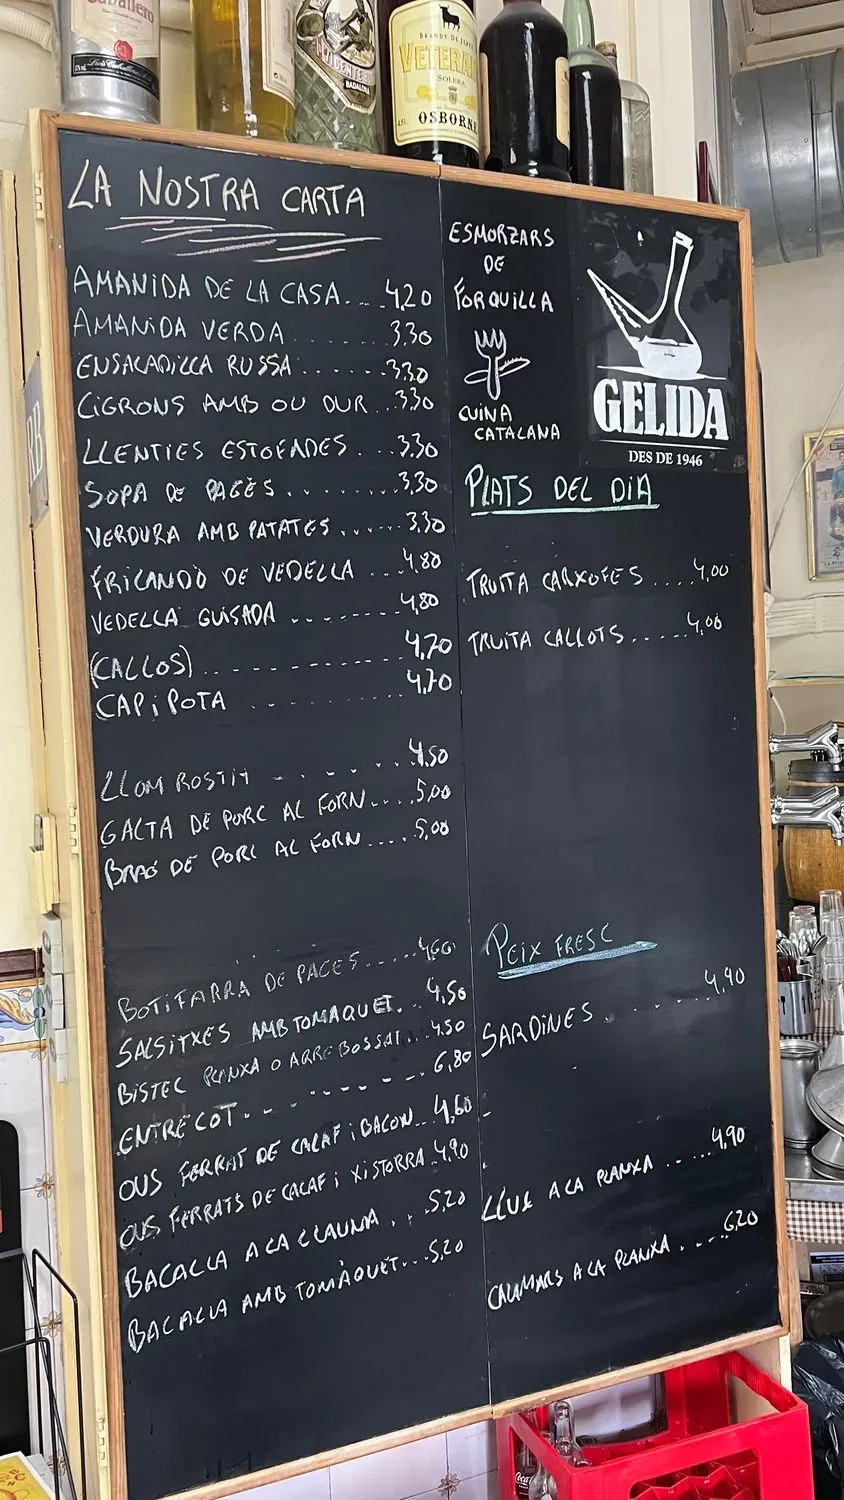 Caballero
Luis Caballero
VICENTE
BADALONA
BRANDY DE JEREZ
VETERANO
SOLERA
OSBORNE
LA NOSTRA CARTA
AMANIDA DE LA CASA.... 4,20
AMANIDA VERDA ....... 3,30
ENSALADILLA RUSSA ....... 3,30
CIGRONS AMB OU DUR ... 3,30
LLENTIES ESTOFADES ... 3,30
SOPA DE PAGÈS ....... 3,30
VERDURA AMB PATATES ...... 3,30
FRICANDÓ DE VEDELLA ... 4,80
VEDELLA GUISADA ........ 4,80
(CALLOS) .......... 4,70
CAP i POTA ......... 4,70
LLOM ROSTIT ..... 4,50
GALTA DE PORC AL FORN.... 5,00
BRAÓ DE PORC AL FORN .... 5,00
BOTIFARRA DE PAGES ..... 4,60
SALSITXES AMB TOMAQUET. 4,50
BISTEC PLANXA O ARREBOSSAT ... 4,50
ENTRECOT ........ 6,80
OUS FERRAT DE CALAF i BACON... 4,60
OUS FERRATS DE CALAF i XISTORRA .. 4,90
BACALLA A LA LLAUNA ... 5,20
BACALLA AMB TOMÀQUET... 5,20
ESMORZARS
DE
FORQUILLA
CUINA
CATALANA
GELIDA
DES DE 1946
PLATS DEL DIA
TRUITA CARXOFES .... 4,00
TRUITA CALLOTS ..... 4,00
PEIX FRESC
SARDINES ....... 4,90
LLUÇ A LA PLANXA ..... 4,90
CALAMARS A LA PLANXA ..... 6,20